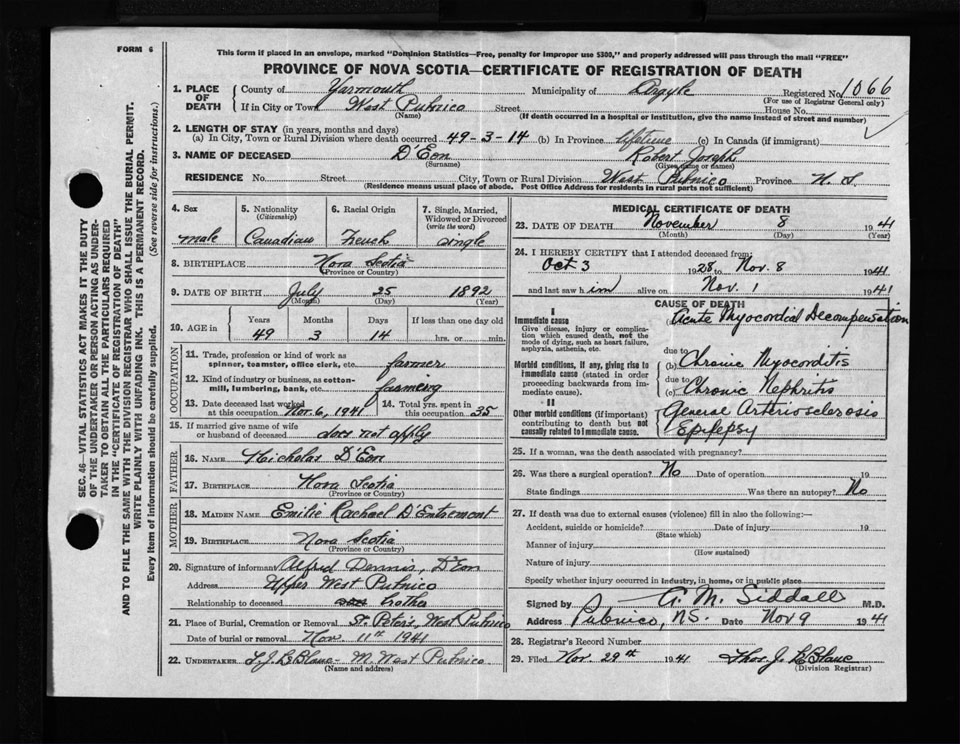 FORM 6
This form if placed in an envelope, marked "Dominion Statistics—Free, penalty for improper use $300," and properly addressed will pass through the mail "FREE"
PROVINCE OF NOVA SCOTIA—CERTIFICATE OF REGISTRATION OF DEATH
1. PLACE OF DEATH County of Yarmouth Municipality of Argyle Registered No. 1066
(For use of Registrar General only)
If in City or Town West Pubnico Street House No.
(Name) (If death occurred in a hospital or institution, give the name instead of street and number)
2. LENGTH OF STAY (in years, months and days)
(a) In City, Town or Rural Division where death occurred 49-3-14 (b) In Province Lifetime (c) In Canada (if immigrant)
3. NAME OF DECEASED D'Eon Robert Joseph
(Surname) (Given name or names)
RESIDENCE No. Street City, Town or Rural Division West Pubnico Province N. S.
(Residence means usual place of abode. Post Office Address for residents in rural parts not sufficient)
4. Sex 5. Nationality (Citizenship) 6. Racial Origin 7. Single, Married, Widowed or Divorced (write the word)
male Canadian French single
8. BIRTHPLACE Nova Scotia
(Province or Country)
9. DATE OF BIRTH July 25 1892
(Month) (Day) (Year)
10. AGE in Years Months Days If less than one day old
49 3 14 hrs. or min.
OCCUPATION
11. Trade, profession or kind of work as spinner, teamster, office clerk, etc. farmer
12. Kind of industry or business, as cotton-mill, lumbering, bank, etc. farming
13. Date deceased last worked at this occupation Nov. 6, 1941 14. Total yrs. spent in this occupation 35
15. If married give name of wife or husband of deceased does not apply
FATHER
16. NAME Nicholas D'Eon
17. BIRTHPLACE Nova Scotia
(Province or Country)
MOTHER
18. MAIDEN NAME Emilie Rachael D'Entremont
19. BIRTHPLACE Nova Scotia
(Province or Country)
20. Signature of informant Alfred Dennis D'Eon
Address Upper West Pubnico
Relationship to deceased brother
21. Place of Burial, Cremation or Removal St. Peter's, West Pubnico
Date of burial or removal Nov. 11th 1941
22. UNDERTAKER L. J. LeBlanc - M. West Pubnico
(Name and address)
MEDICAL CERTIFICATE OF DEATH
23. DATE OF DEATH November 8 1941
(Month) (Day) (Year)
24. I HEREBY CERTIFY that I attended deceased from:
Oct 3 1928 to Nov. 8 1941
and last saw him alive on Nov. 1 1941
CAUSE OF DEATH
I
Immediate cause (a) Acute Myocordial Decompensation
Give disease, injury or complication which caused death, not the mode of dying, such as heart failure, asphyxia, asthenia, etc.
due to
Morbid conditions, if any, giving rise to immediate cause (stated in order proceeding backwards from immediate cause). (b) Chronic Myocorditis
due to
(c) Chronic Nephritis
II
Other morbid conditions (if important) contributing to death but not causally related to immediate cause. General Arteriosclerosis
Epilepsy
25. If a woman, was the death associated with pregnancy?
26. Was there a surgical operation? No Date of operation 19
State findings Was there an autopsy? No
27. If death was due to external causes (violence) fill in also the following:—
Accident, suicide or homicide? Date of injury 19
(State which)
Manner of injury
(How sustained)
Nature of injury
Specify whether injury occurred in industry, in home, or in public place
Signed by G. M. Siddall M.D.
Address Pubnico, N.S. Date Nov 9 1941
28. Registrar's Record Number
29. Filed Nov. 29th 1941 Thos. J. LeBlanc
(Division Registrar)
SEC. 46—VITAL STATISTICS ACT MAKES IT THE DUTY
OF THE UNDERTAKER OR PERSON ACTING AS UNDER-
TAKER TO OBTAIN ALL THE PARTICULARS REQUIRED
IN THE "CERTIFICATE OF REGISTRATION OF DEATH"
AND TO FILE THE SAME WITH THE DIVISION REGISTRAR WHO SHALL ISSUE THE BURIAL PERMIT.
WRITE PLAINLY WITH UNFADING INK. THIS IS A PERMANENT RECORD.
Every item of information should be carefully supplied. (See reverse side for instructions.)